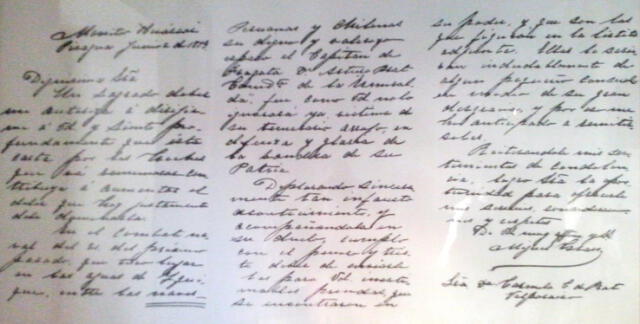 Monitor Huáscar
Pisagua Junio 2 de 1879
Dignísima Sra
Un sagrado deber
me autoriza á dirijir
me á Vd y siento pro-
fundamente que esta
carta por las luchas
que vá á rememorar con-
tribuya á aumentar el
dolor que hoy justamente
debe dominarla.
En el combate na-
val del 21 del próximo
pasado, que tuvo lugar
en las aguas de Iqui-
que, entre las naves
Peruanas y Chilenas
su digno y valeroso
esposo el Capitan de
Fragata Dn Arturo Prat
Comdte de la Esmeral-
da, fué como Vd no lo
ignorará ya, víctima de
su temerario arrojo, en
defensa y gloria de
la bandera de su
Patria.
Deplorando sincera-
mente tan infausto
acontecimiento, y
acompañandola en
su duelo, cumplo
con el penoso y tris-
te deber de enviar
las para Vd. inesti-
mables prendas, que
se encontraron en
su poder, y que son las
que figuran en la lista
adjunta. Ellas le servi-
rán indudablemente de
algun pequeño consuelo
en medio de su gran
desgracia, y por eso me
he anticipado á remitir
selas.
Reiterandole mis sen-
timientos de condolen-
cia, logro Sra la opor-
tunidad para ofrecerle
mis servicios, consideracio-
nes y respetos
Miguel Grau
Sra Da Carmela C. de Prat
Valparaiso